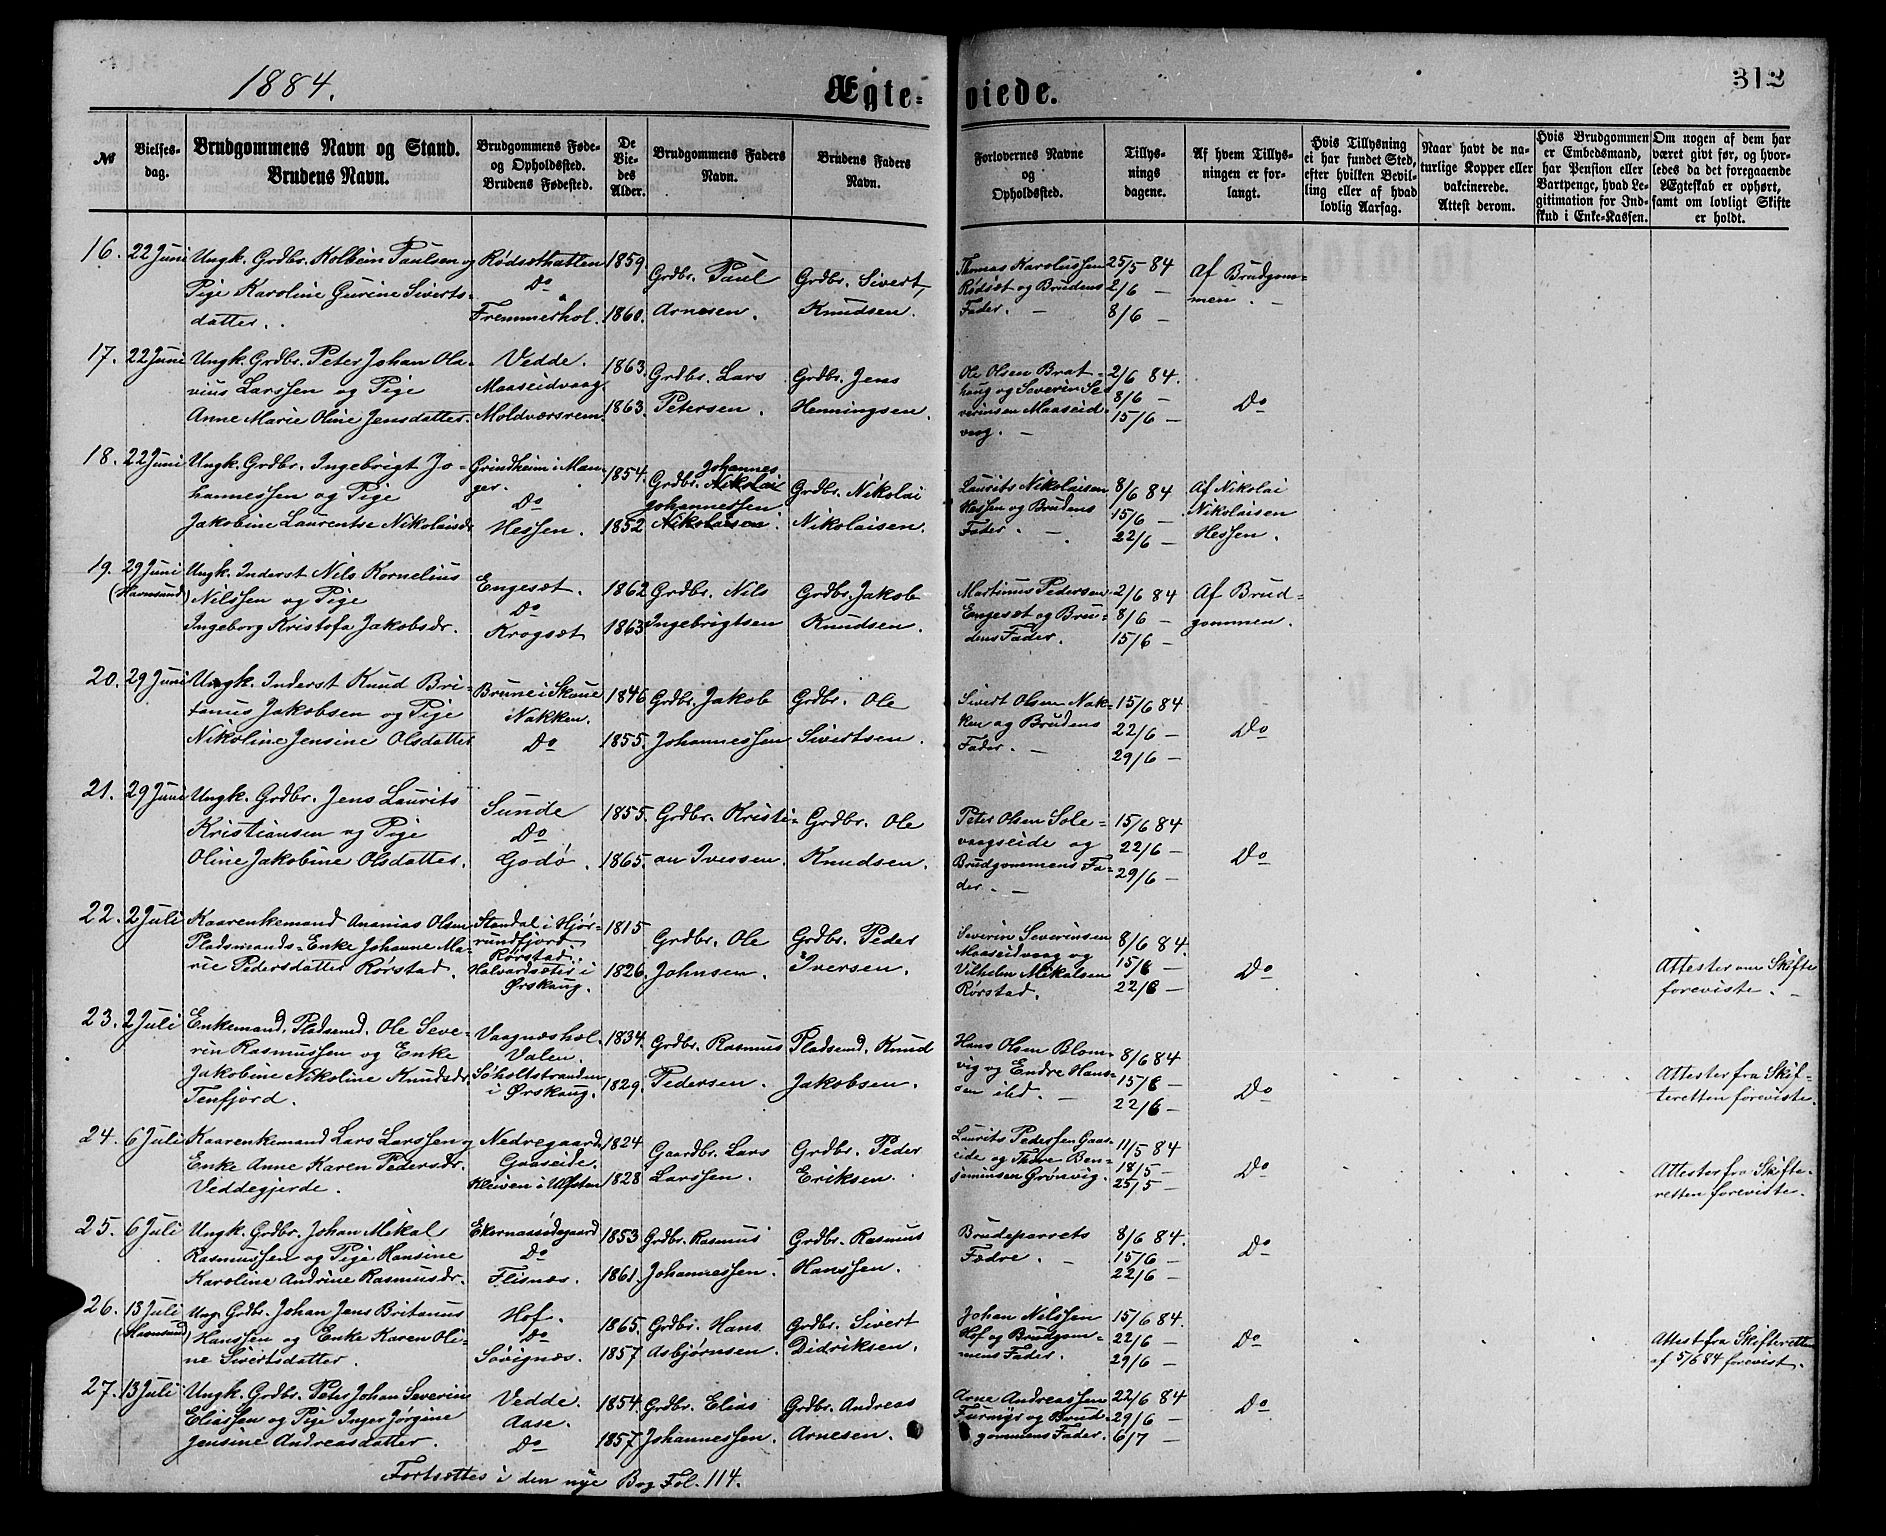 1884.
Ægte-
viede.
312
№
Vielses-
dag.
Brudgommens Navn og Stand.
Brudens Navn.
Brudgommens Føde-
og Opholdssted.
Brudens Fødested.
De
Vie-
des
Alder.
Brudgommens Faders
Navn.
Brudens Faders
Navn.
Forlovernes Navne
og
Opholdssted.
Tillys-
nings
dagene.
Af hvem Tillys-
ningen er for-
langt.
Hvis Tillysning
ei har fundet Sted,
efter hvilken Bevil-
ling eller af hvad
lovlig Aarsag.
Naar havt de na-
turlige Kopper eller
vakcinerede.
Attest derom.
Hvis Brudgommen
er Embedsmand,
har Pension eller
Vartpenge, hvad Le-
gitimation for Ind-
skud i Enke-Kassen.
Om nogen af dem har
været givt før, og hvor-
ledes da det foregaaende
Ægteskab er ophørt,
samt om lovligt Skifte
er holdt.
16. 22 Juni
Ungk. Grdbr. Kolbein Paulsen og
Pige Karoline Gurine Siverts-
datter.
Rødsæthatten
Do
Fremmerhol.
1859
1860.
Grdbr. Paul
Arnesen.
Grdbr. Sivert
Knudsen.
Thomas Karolussen
Rødsæt og Brudens
Fader. —
25/5 84
2/6 —
8/6 —
Af Brudgom-
men. —
17. 22 Juni
Ungk. Grdbr. Peter Johan Ola-
vius Larssen og Pige
Anne Marie Oline Jensdatter.
Vedde.
Maaseidvaag
Moldværsrem.
1863.
1863.
Grdbr. Lars
Petersen.
Grdbr. Jens
Henningsen.
Ole Olsen Brat-
haug og Severin Se-
verinsen Maaseid-
vaag. —
2/6 84.
8/6 —
15/6 —
Do
18. 22 Juni
Ungk. Grdbr. Ingebrigt Jo-
hannessen og Pige
Jakobine Laurentse Nikolaisdr.
Grindheim i Man-
ger.
Do
Hessen.
1854.
1852
Johannes
Grdbr. Nikolai
Johannessen
Nikolaisen.
Grdbr. Nikolai
Nikolaisen.
Laurits Nikolaisen
Hessen og Brudens
Fader. —
8/6 84
15/6 —
22/6 —
Af Nikolai
Nikolaisen
Hessen.
19. 29 Juni
(Havnsund)
Ungk. Inderst Nils Kornelius
Nilssen og Pige
Ingeborg Kristofa Jakobsdr.
Engesæt.
Do
Krogsæt
1862
1863
Grdbr. Nils
Ingebrigtsen
Grdbr. Jakob
Knudsen.
Martinus Pedersen
Engesæt og Bru-
dens Fader.
2/6 84
8/6 —
15/6 —
Af Brud-
gommen.
20. 29 Juni
Ungk. Inderst Knud Bri-
tanus Jakobsen og Pige
Nikoline Jensine Olsdatter
Brune i Skoue
Nakken.
Do
1846
1855.
Grdbr. Jakob
Johannessen
Grdbr. Ole
Sivertsen.
Sivert Olsen Nak-
ken og Brudens
Fader. —
15/6 84
22/6 —
29/6 —
Do
21. 29 Juni
Ungk. Grdbr. Jens Laurits
Kristiansen og Pige
Oline Jakobine Olsdatter.
Sunde
Do
Godø.
1855.
1865.
Grdbr. Kristi-
an Iverssen.
Grdbr. Ole
Knudsen.
Peter Olsen Sole-
vaagseide og
Brudgommens Fa-
der. —
15/6 84
22/6 —
29/6 —
Do
22. 2 Juli
Kaarenkemand Ananias Olsen
Pladsmands-Enke Johanne Ma-
rie Pedersdatter Rørstad.
Standal i Hjør-
rundfjord
Rørstad.
Halvardsæter i
Ørskoug.
1815
1826.
Grdbr. Ole
Johnsen.
Grdbr. Peder
Iversen.
Severin Severinsen
Maaseidvaag og
Vilhelm Mikalsen
Rørstad.
8/6 84.
15/6 —
22/6 —
Do
Attester om Skifte
foreviste. —
23. 2 Juli
Enkemand. Pladsmd. Ole Seve-
rin Rasmussen og Enke
Jakobine Nikoline Knudsdr.
Tenfjord.
Vaagnæshal.
Valen.
Søholtstranden
i Ørskoug.
1834.
1829.
Grdbr. Rasmus
Pedersen.
Pladsmd. Knud
Jakobsen.
Hans Olsen Blom-
vig og Endre Hans-
sen ibd. —
8/6 84
15/6 —
22/6 —
Do
Attester fra Skif-
teretten foreviste.
24. 6 Juli
Kaarenkemand Lars Larssen og
Enke Anne Karen Pedersdr.
Veddegjerde.
Nedregaard
Gaaseide.
Kleiven i Ulfsten
1824
1828
Gaardbr. Lars
Larssen.
Grdbr. Peder
Eriksen.
Laurits Pederssen Gaas-
eide og Thore Ben-
jaminsen Grønvig.
11/5 84
18/5 —
25/5 —
Do
Attester fra Skifte-
retten foreviste.
25. 6 Juli
Ungk. Grdbr. Johan Mikal
Rasmussen og Pige Hansine
Karoline Andrine Rasmusdr.
Ekornaasødegaard
Do
Flisnæs.
1853
1861.
Grdbr. Rasmus
Johannessen.
Grdbr. Rasmus
Hanssen.
Brudeparrets
Fædre. —
8/6 84.
15/6 —
22/6 —
Do
26. 13 Juli
(Havnsund)
Ung. Grdbr. Johan Jens Britanus
Hanssen og Enke Karen Oli-
ne Sivertsdatter.
Hof.
Do
Søvignæs.
1865.
1857
Grdbr. Hans
Asbjørnsen.
Grdbr. Sivert
Didriksen.
Johan Nilssen
Hof og Brudgom-
mens Fader.
15/6 84.
22/6 —
29/6 —
Do
Attest fra Skifteretten
af 5/6 84 forevist.
27. 13 Juli
Ungk. Grdbr. Peter Johan Severin
Eliassen og Pige Inger Jørgine
Jensine Andreasdatter.
Vedde.
Aase.
Do
1854.
1857
Grdbr. Elias
Johannessen.
Grdbr. Andreas
Arnesen.
Arne Andreassen
Furmyr og Brud-
gommens Fader.
22/6 84
29/6 —
6/7 —
Do
Fortsættes i den nye Bog Fol. 114.